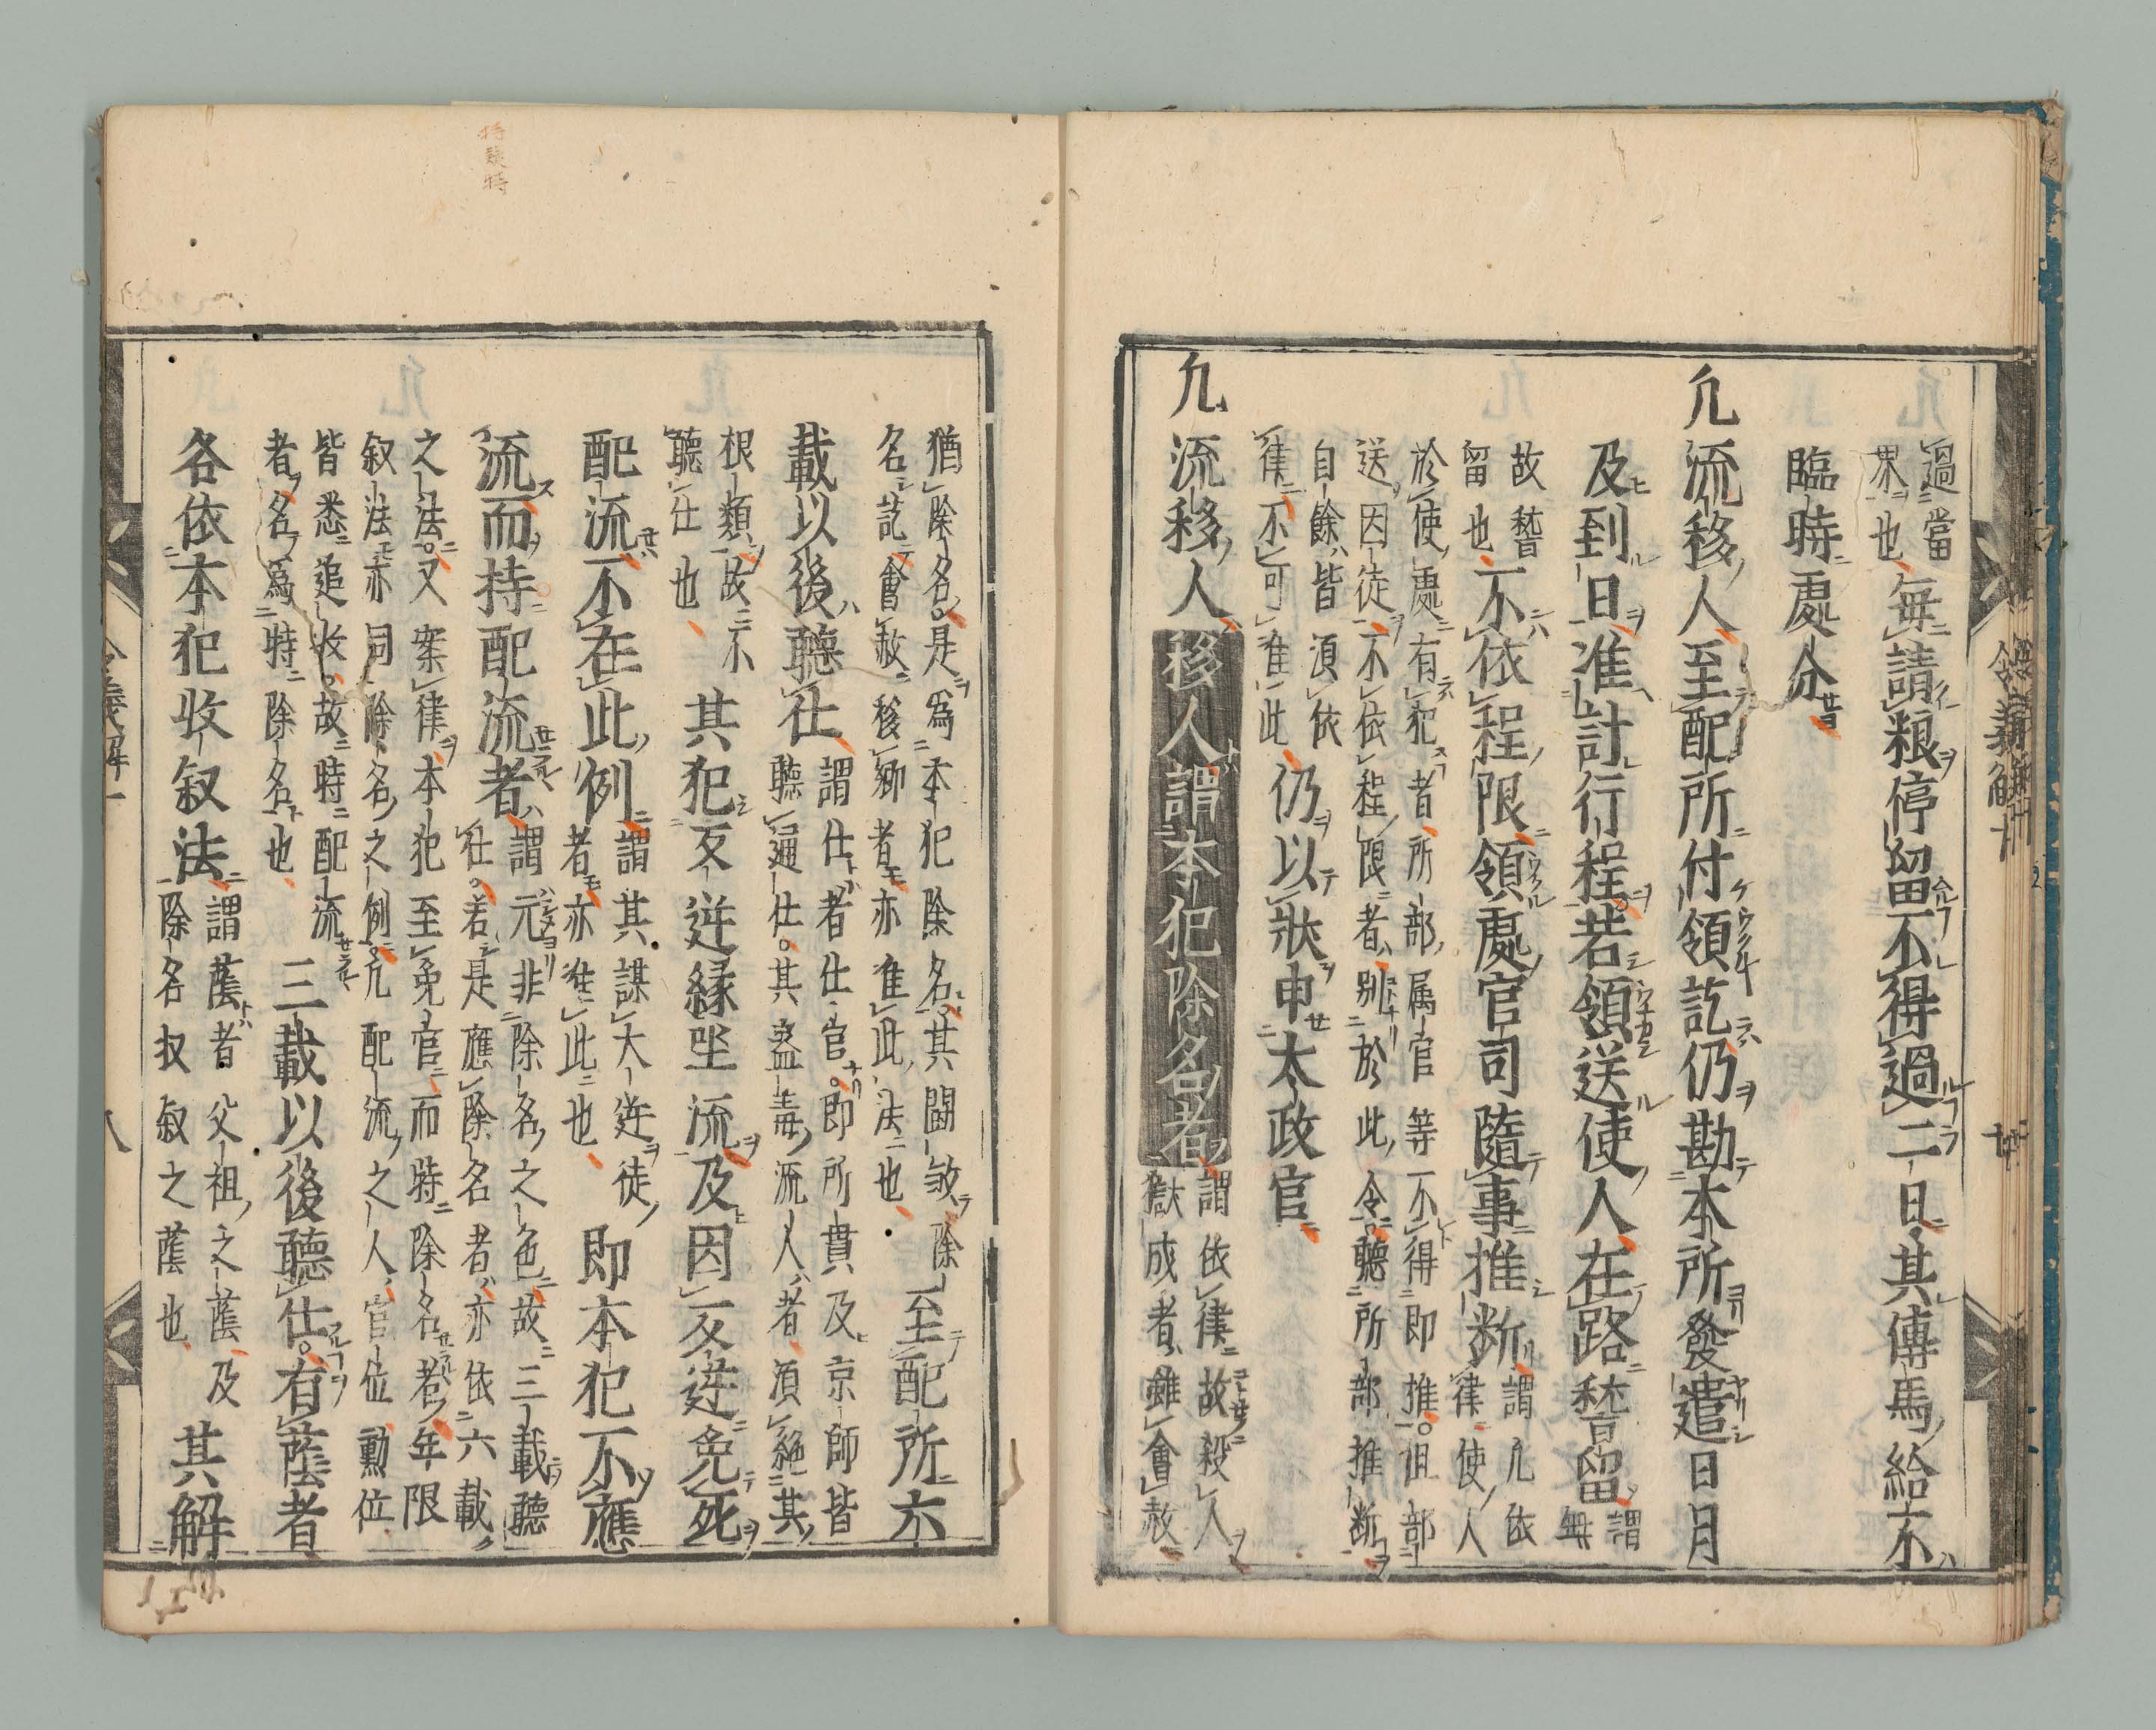 過當
界也
無請粮停留不得過二日其傳馬給不
臨時處分
凢流移人至配所付領訖仍勘本所發遣日月
及到日准計行程若領送使人在路稽留
謂無
故稽
留也
不依程限領處官司隨事推断
謂凢依
律使人
於使處有犯者所部属官等不得即推但部
送因徒不依程限者別於此令聽所部推断
自餘皆湏依
律不可准此
仍以狀申太政官
凢流移人
移人謂本犯除名者
謂依律故殺人
獄成者雖會赦
猶除名是爲本犯除名其闘敦除
名訖會赦移郷者亦准此法也
至配所六
載以後聽仕
謂仕者仕官即所貫及京師皆
聽通仕其蠱毒流人者湏絶其
根類故不
聽仕也
其犯反逆縁坐流及因反逆免死
配流不在此例
謂其謀大逆徒
者亦准此也
即本犯不應
流而持配流者
謂元非除名之色故三載聽
仕若是應除名者亦依六載
之法又案律本犯至免官而特除名者年限
叙法亦同除名之例凢配流之人官位勳位
皆悉追收故特配流
者名爲特除名也
三載以後聽仕有蔭者
各依本犯收叙法
謂蔭者父祖之蔭及
除名収叙之蔭也
其解
令義解十